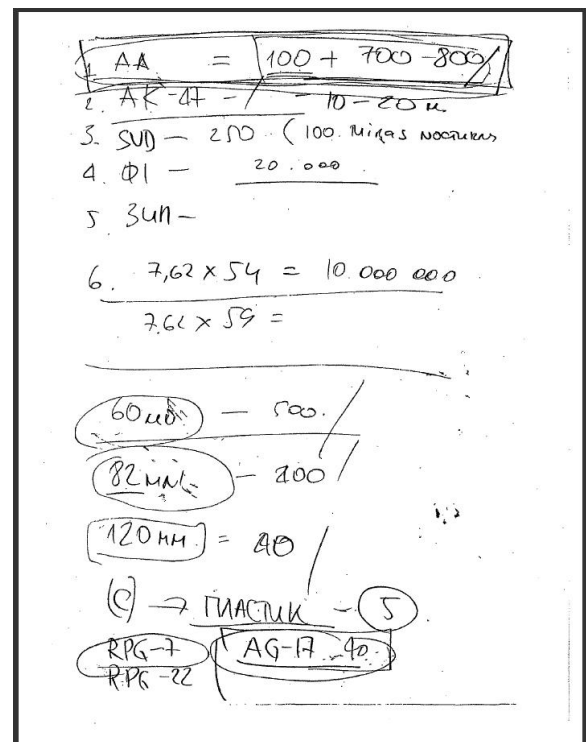 1. AA = 100 + 700-800
2. AK-47 - / - 10-20
3. SVD - 250 (100. miras
4. Ф1 - 20.000
5. ЗИП -
6. 7,62 x 54 = 10.000 000
7.62 x 59 =
60 - 500. /
82 - 200 /
120 мм = 40 /
(C) → ПЛАСТИК - 5
RPG-7 AG-17 - 40
RPG-22